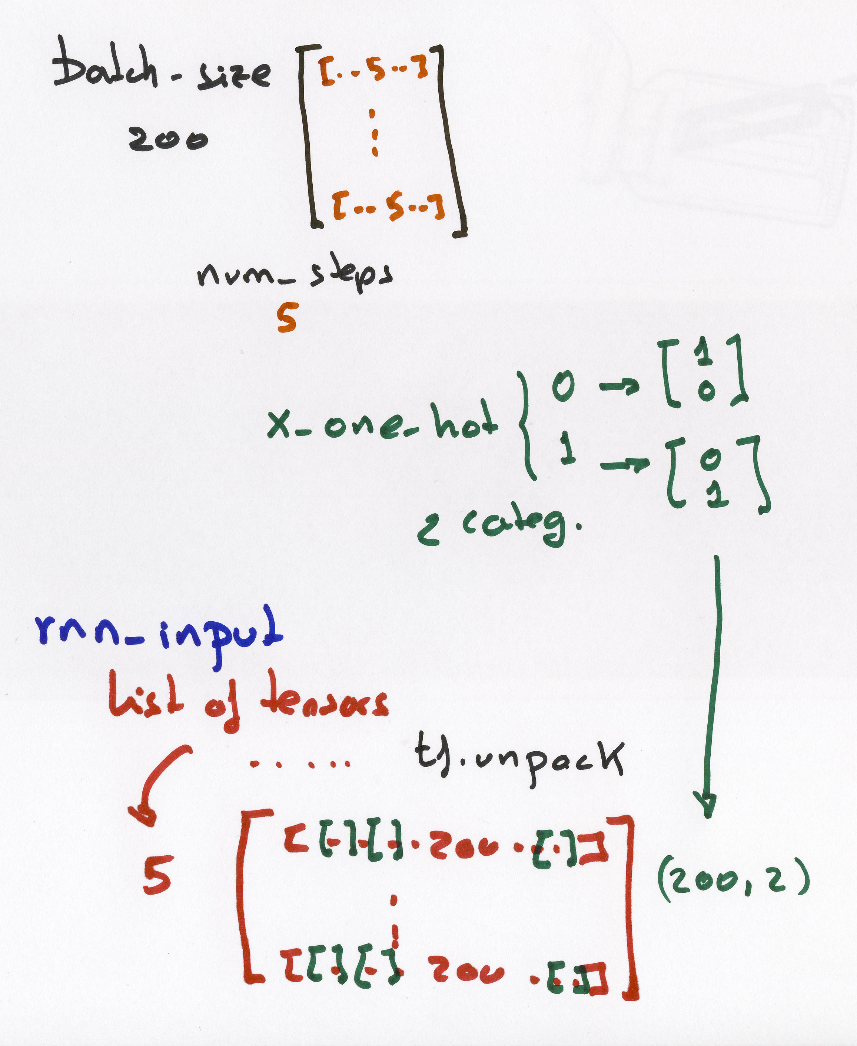 batch-size [[..5..]
200
⋮
[..5..]]
num_steps
5
x_one_hot { 0 → [1 0]
1 → [0 1]
2 categ.
rnn_input
list of tensors
.....
tf.unpack
5 [[[.][.]. 200 .[.]]
(200, 2)
⋮
[[.][.]. 200 .[.]]]